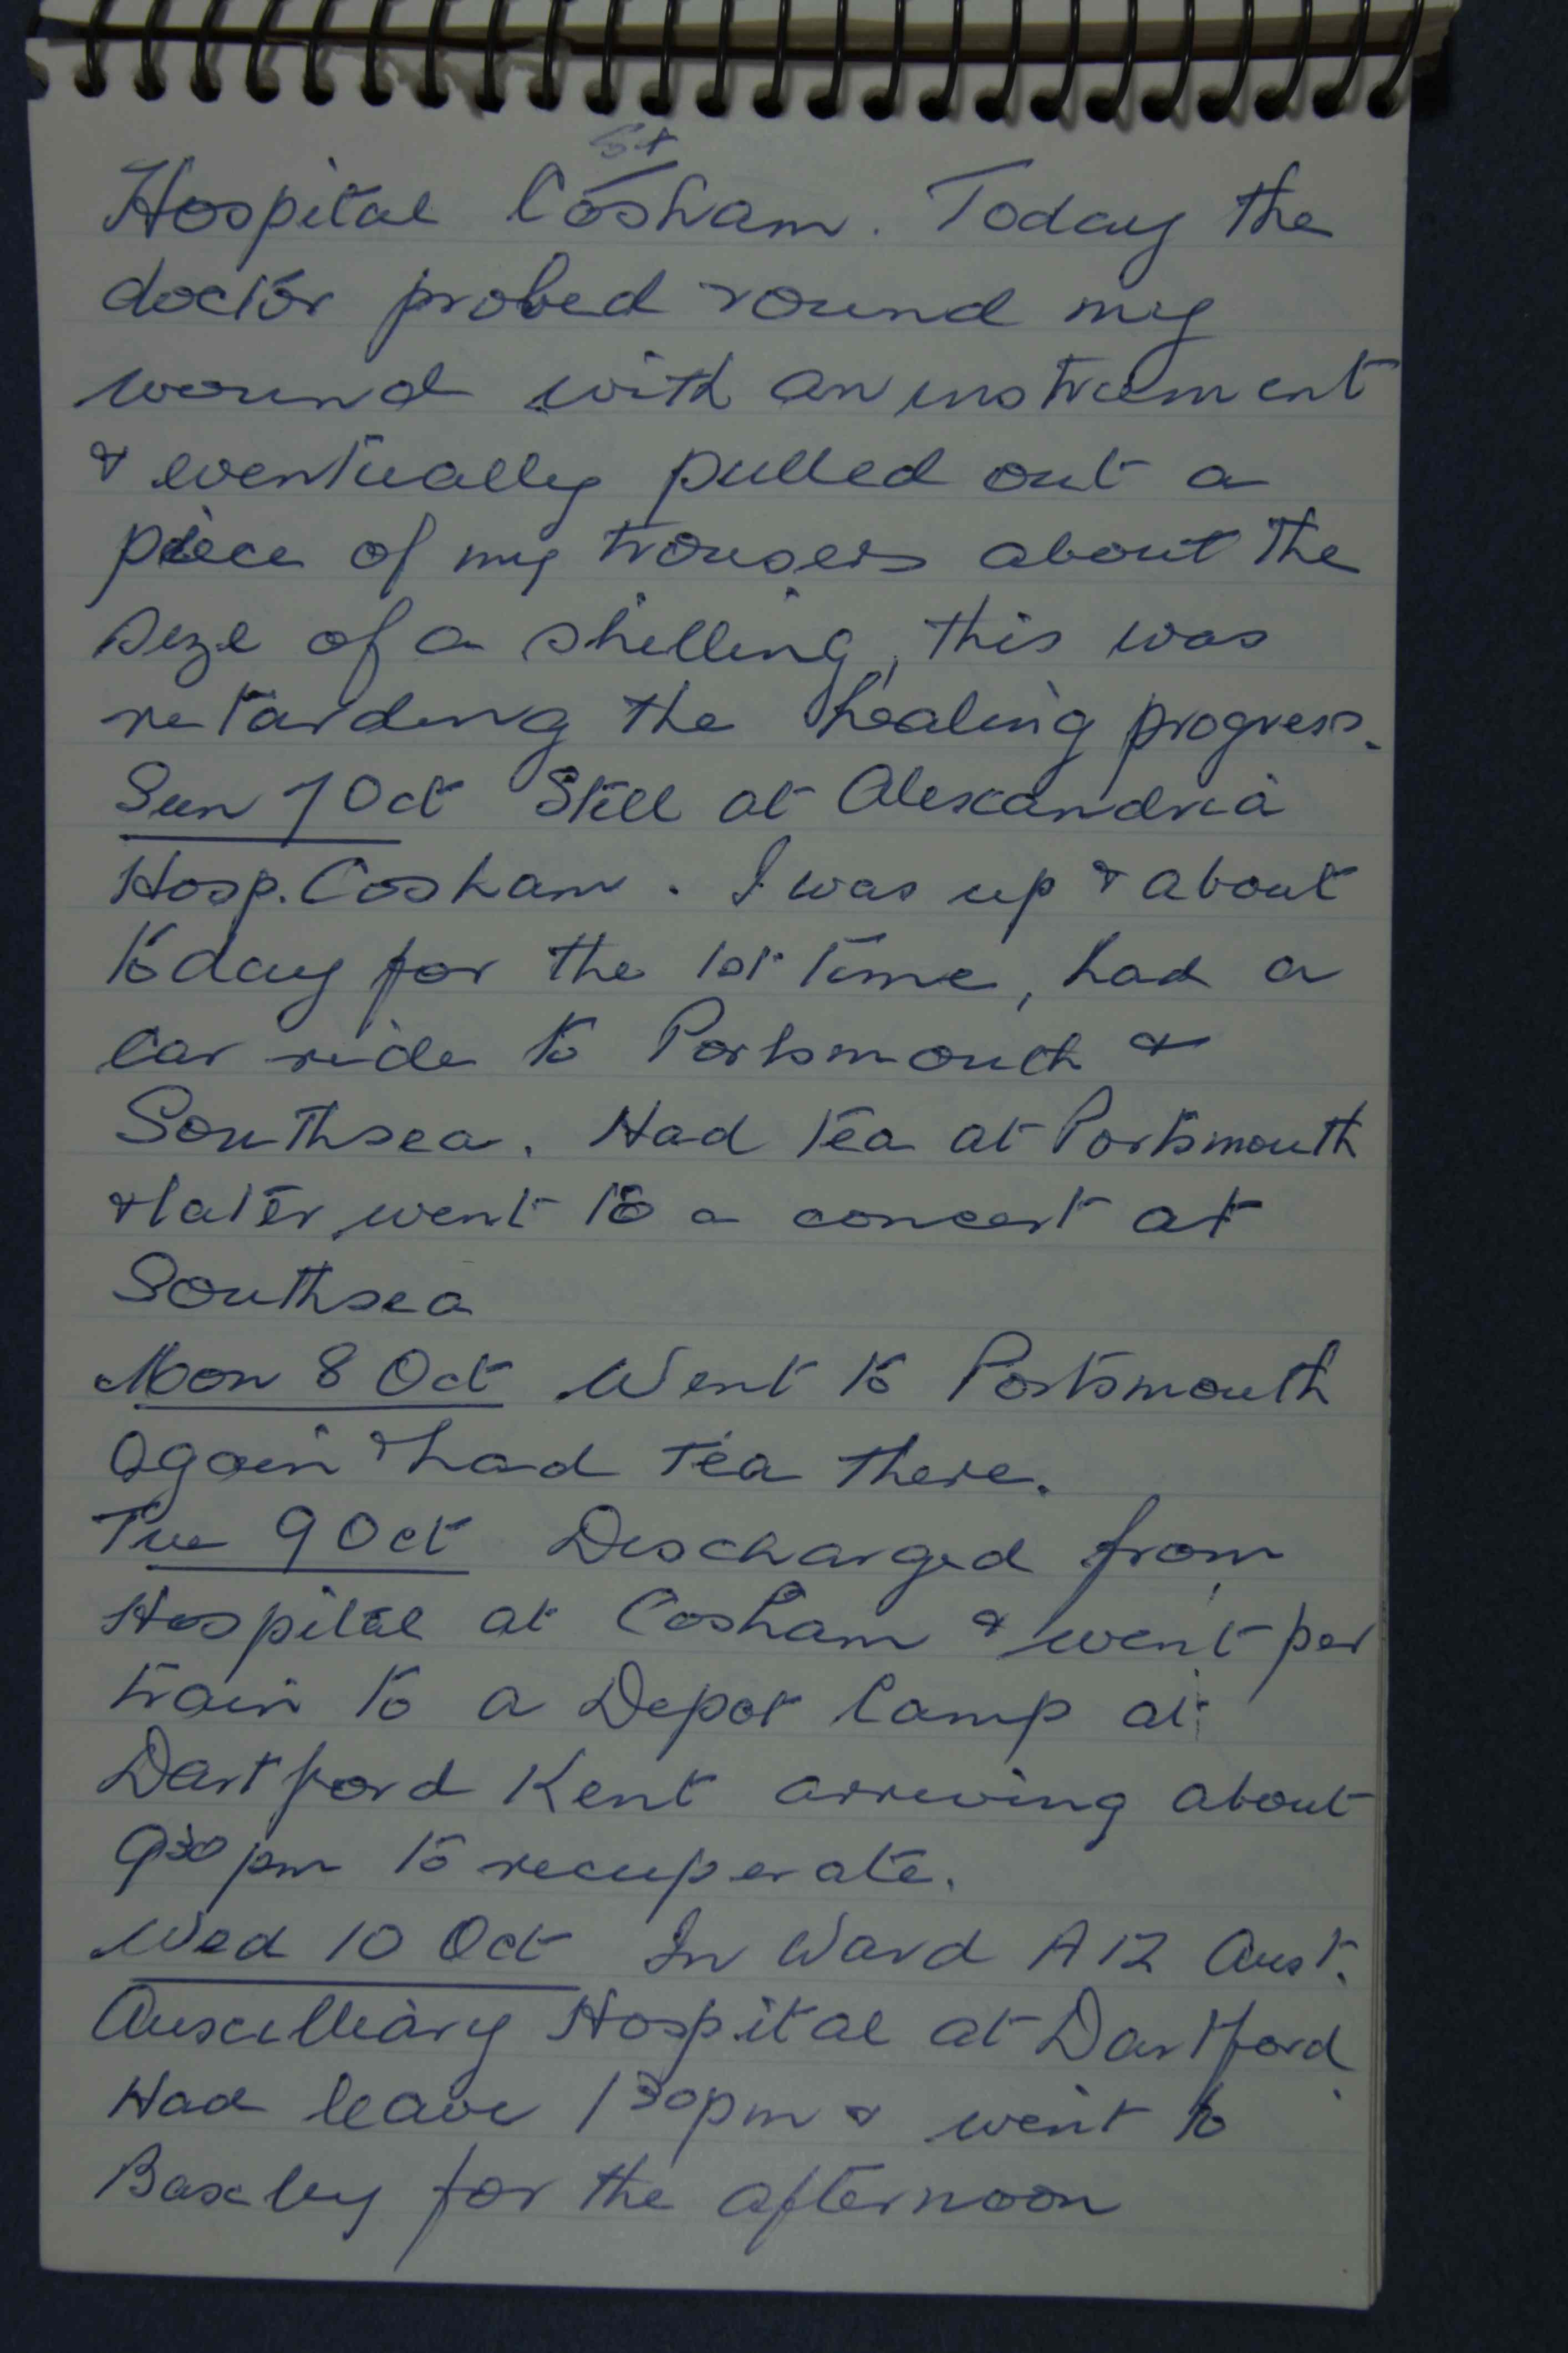 Hospital Cosham. Today the
doctor probed round my
wound with an instrument
& eventually pulled out a
piece of my trousers about the
size of a shilling, this was
retarding the healing progress.
Sun 7 Oct Still at Alexandria
Hosp. Cosham. I was up & about
today for the 1st time, had a
car ride to Portsmouth &
Southsea. Had tea at Portsmouth
& later went to a concert at
Southsea
Mon 8 Oct Went to Portsmouth
again & had tea there.
Tue 9 Oct Discharged from
Hospital at Cosham & went per
train to a Depot Camp at
Dartford Kent arriving about
9³⁰ pm to recuperate.
Wed 10 Oct In Ward A12 Aust.
Auxilliary Hospital at Dartford
Had leave 1³⁰ pm & went to
Baxley for the afternoon